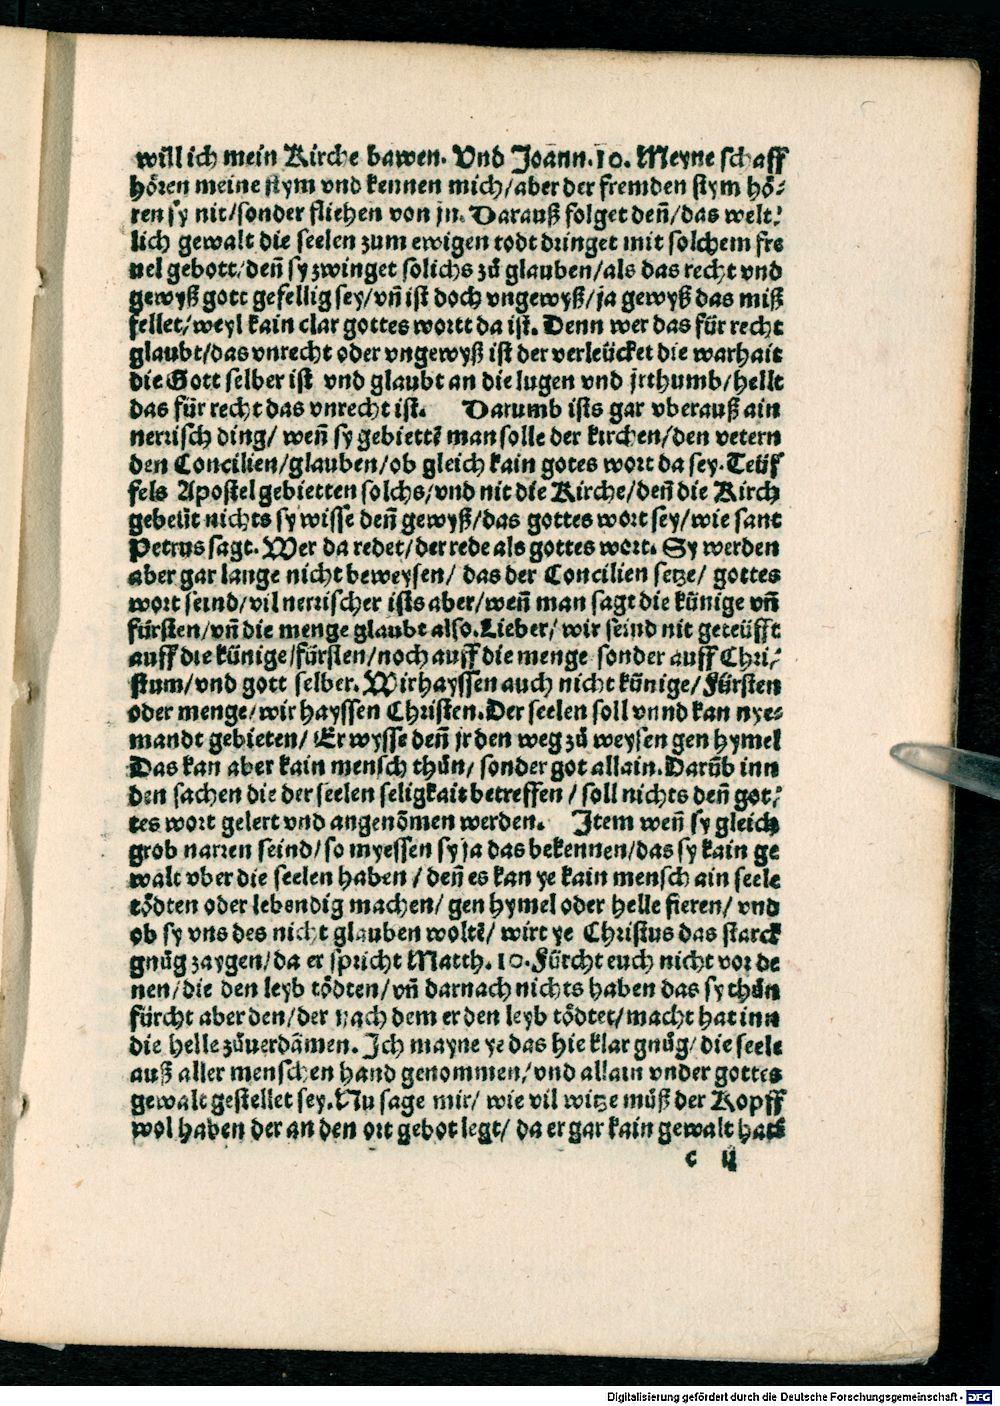 will ich mein Kirche bawen. Und Joann. 10. Meyne schaff
hören meine stym vnd kennen mich/aber der fremden stym hö⸗
ren sy nit/sonder fliehen von jn. Darauß folget deñ/das welt⸗
lich gewalt die seelen zum ewigen todt dringet mit solchem fre
uel gebott/deñ sy zwinget solichs zů glauben/als das recht vnd
gewyß gott gefellig sey/vñ ist doch vngewyß/ja gewyß das miß
fellet/weyl kain clar gottes wortt da ist. Denn wer das für recht
glaubt/das vnrecht oder vngewyß ist der verleücket die warhait
die Gott selber ist vnd glaubt an die lugen vnd jrthumb/hellt
das für recht das vnrecht ist. Darumb ists gar vberauß ain
nerrisch ding/ weñ sy gebiettẽ man solle der kirchen/den vetern
den Concilien/glauben/ob gleich kain gotes wort da sey. Teüf
fels Apostel gebietten solchs/vnd nit die Kirche/deñ die Kirch
gebeüt nichts sy wisse deñ gewyß/das gottes wort sey/wie sant
Petrus sagt. Wer da redet/der rede als gottes wort. Sy werden
aber gar lange nicht beweysen/ das der Concilien setze/ gottes
wort seind/vil nerrischer ists aber/weñ man sagt die künige vñ
fürsten/vñ die menge glaubt also. Lieber/ wir seind nit geteüfft
auff die künige/fürsten/noch auff die menge sonder auff Chri⸗
stum/vnd gott selber. Wir hayssen auch nicht künige/Fürsten
oder menge/wir hayssen Christen. Der seelen soll vnnd kan nye⸗
mandt gebieten/ Er wysse deñ jr den weg zů weysen gen hymel
Das kan aber kain mensch thůn/ sonder got allain. Darũb inn
den sachen die der seelen seligkait betreffen / soll nichts deñ got⸗
tes wort gelert vnd angenõmen werden. Item weñ sy gleich
grob narren seind/so myessen sy ja das bekennen/das sy kain ge
walt vber die seelen haben / deñ es kan ye kain mensch ain seele
tödten oder lebendig machen/ gen hymel oder helle fieren/ vnd
ob sy vns des nicht glauben woltẽ/ wirt ye Christus das starck
gnůg zaygen/da er spricht Matth. 10. Fürcht euch nicht vor de
nen/die den leyb tödten/vñ darnach nichts haben das sy thůn
fürcht aber den/der nach dem er den leyb tödtet/macht hat inn
die helle zůuerdãmen. Ich mayne ye das hie klar gnůg/ die seele
auß aller menschen hand genommen/vnd allain vnder gottes
gewalt gestellet sey. Nu sage mir/ wie vil witze můß der Kopff
wol haben der an den ort gebot legt/ da er gar kain gewalt hat?
c ij
Digitalisierung gefördert durch die Deutsche Forschungsgemeinschaft - DFG